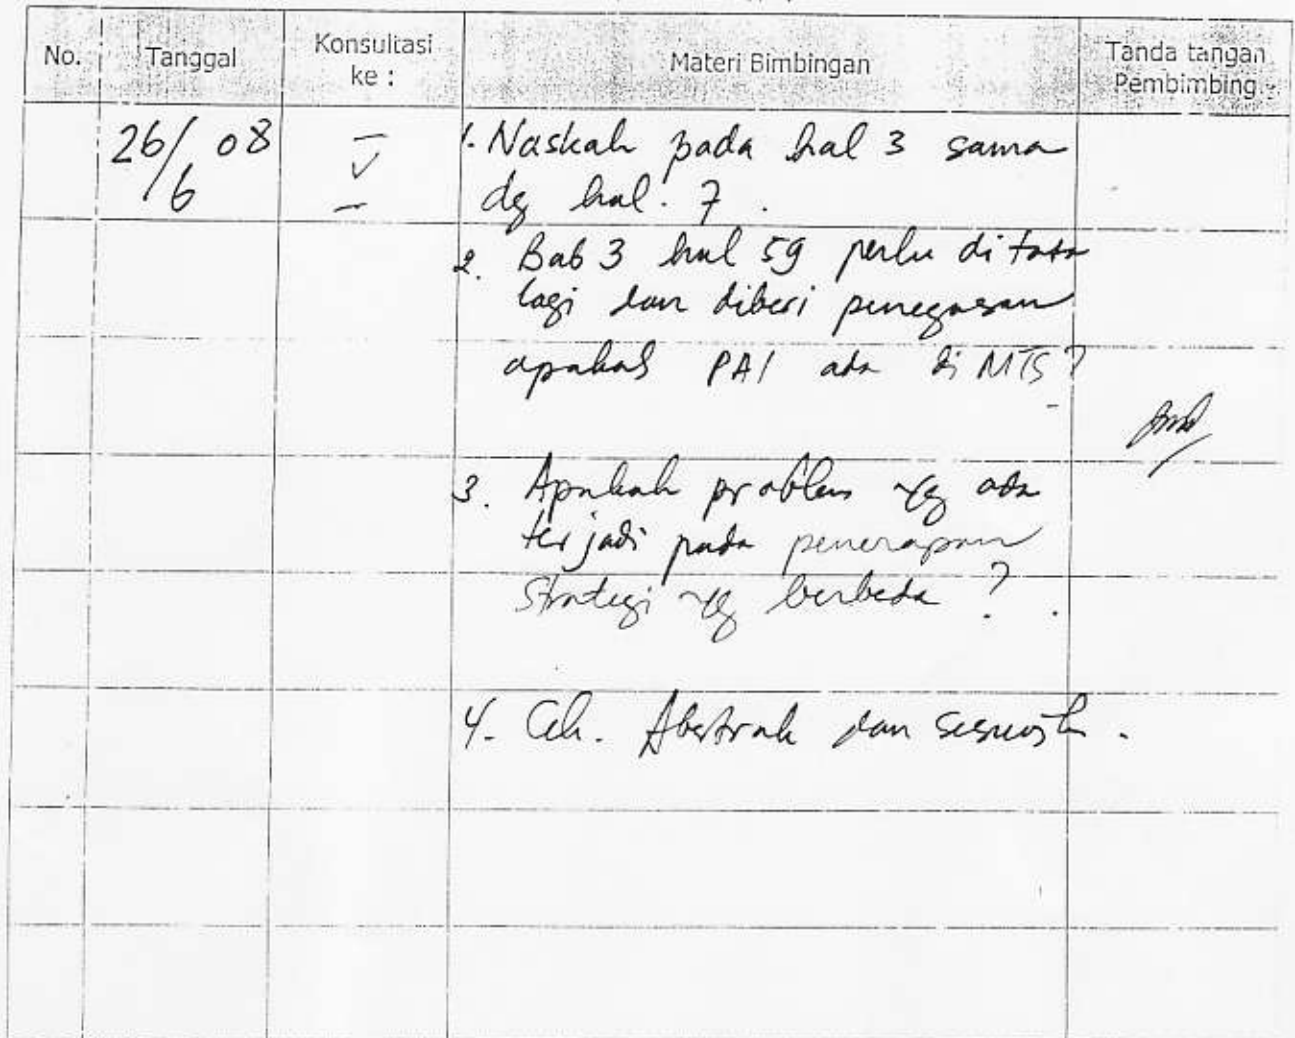 No.
Tanggal
Konsultasi
ke :
Materi Bimbingan
Tanda tangan
Pembimbing
26/6 08
IV
1. Naskah pada hal 3 sama
dg hal. 7.
2. Bab 3 hal 59 perlu di tata
lagi dan diberi penegasan
apakah PAI ada di MTS?
3. Apakah problem yg ada
terjadi pada penerapan
strategi yg berbeda?.
4. Cek. Abstrak dan